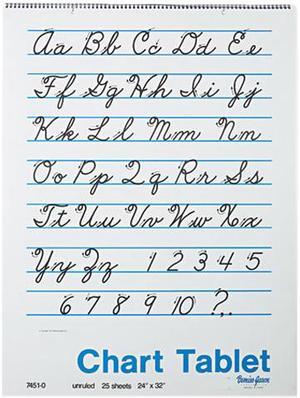 Aa Bb Cc Dd Ee
Ff Gg Hh Ii Jj
Kk Ll Mm Nn
Oo Pp Qq Rr Ss
Tt Uu Vv Ww Xx
Yy Zz 1 2 3 4 5
6 7 8 9 10 ?,.
Chart Tablet
7451-0 unruled 25 sheets 24" x 32"